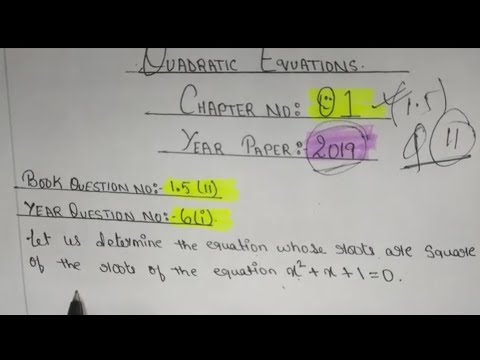 QUADRATIC EQUATIONS.
CHAPTER NO: 01 (1.5)
YEAR PAPER:- 2019 11
BOOK QUESTION NO:- 1.5 (11)
YEAR QUESTION NO:- 6(i)
Let us determine the equation whose roots are square
of the roots of the equation x²+x+1=0.